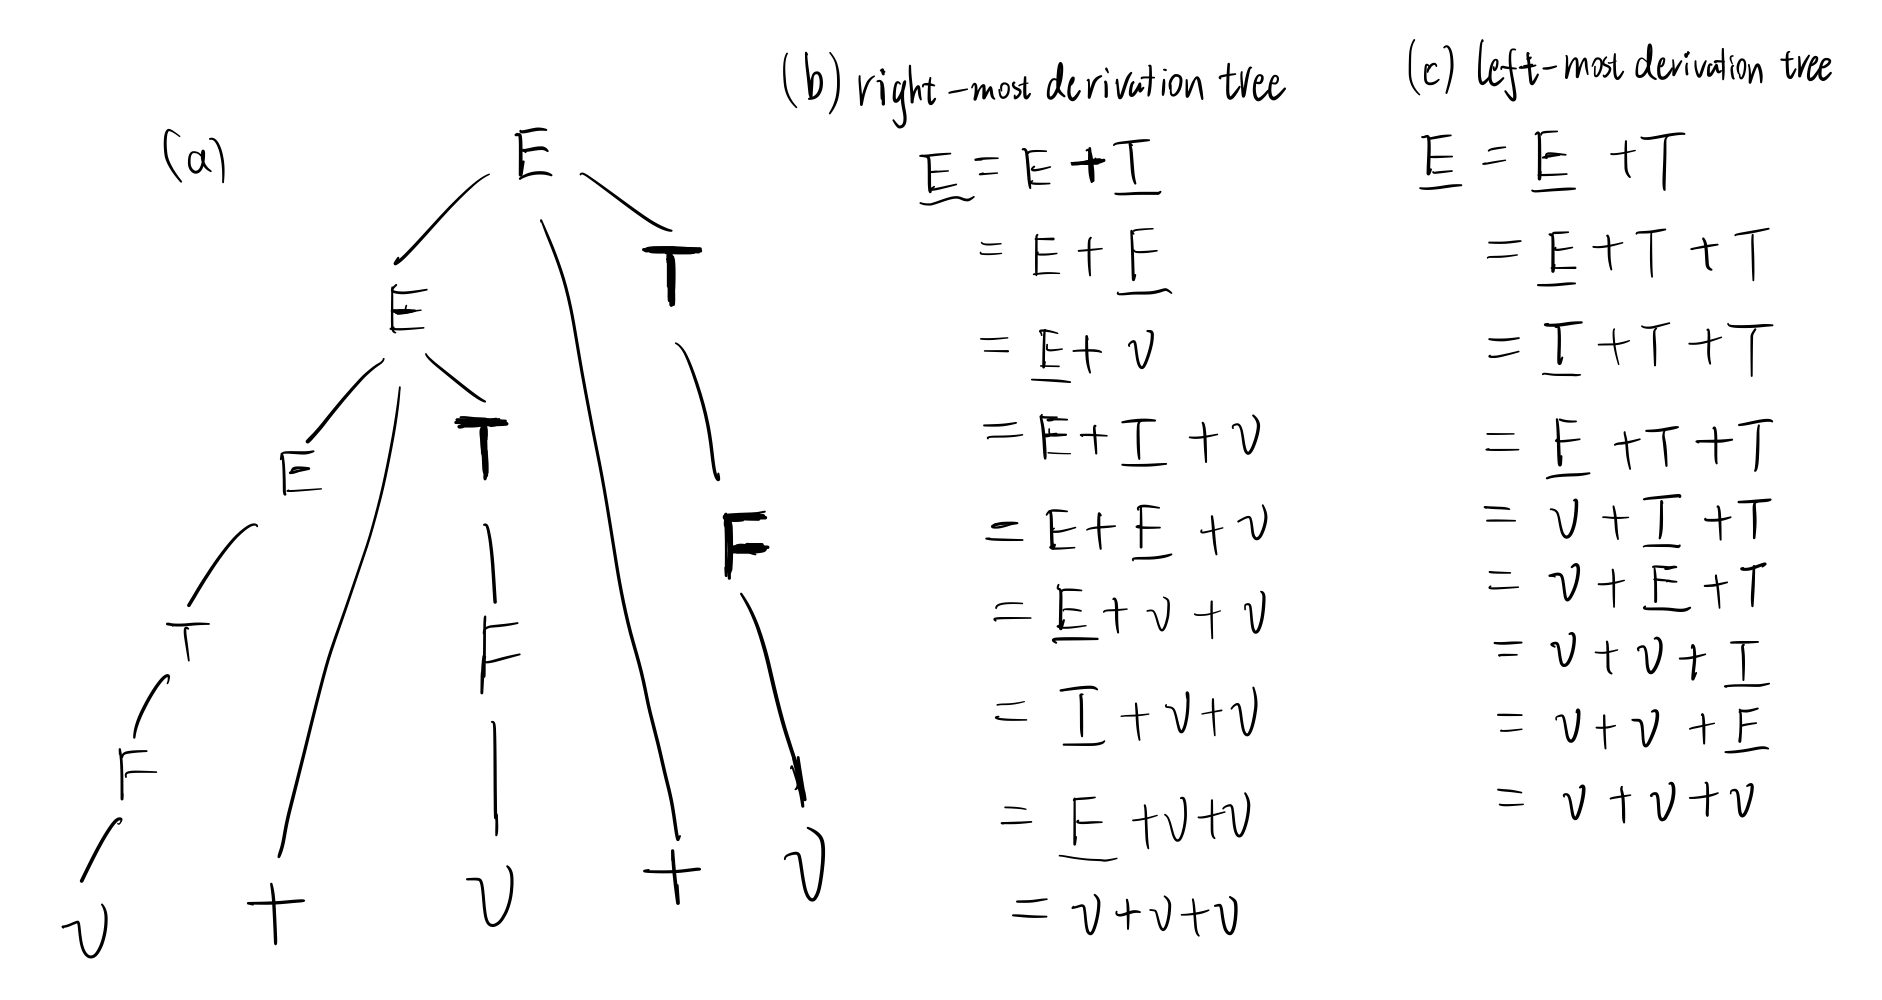 (a)
E
E + T
E + T F
T F
F
v + v + v
(b) right-most derivation tree
E = E + T
= E + F
= E + v
= E + T + v
= E + F + v
= E + v + v
= T + v + v
= F + v + v
= v + v + v
(c) left-most derivation tree
E = E + T
= E + T + T
= T + T + T
= F + T + T
= v + T + T
= v + F + T
= v + v + T
= v + v + F
= v + v + v